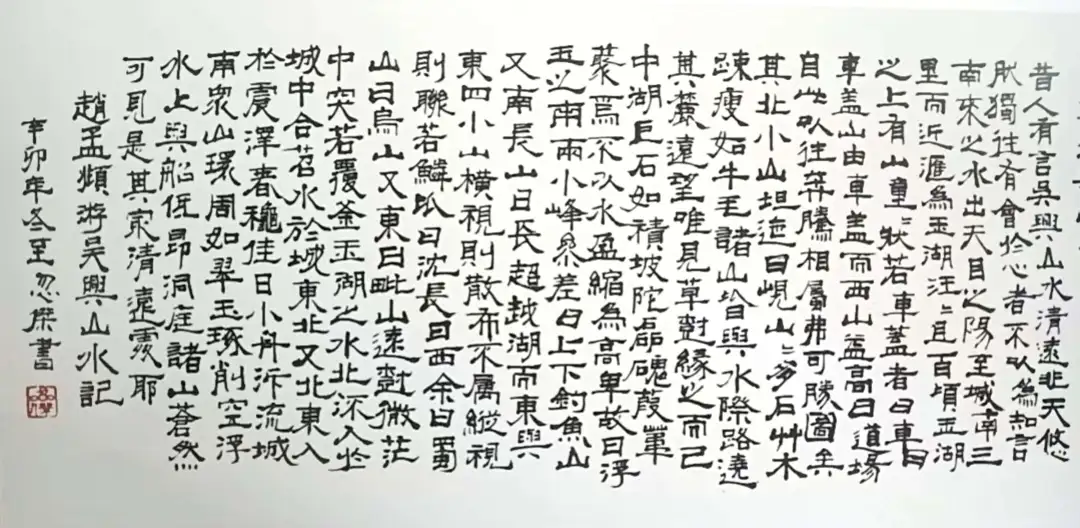 昔人有言吳興山水清遠非天悠
然獨往有會於心者不以為知言
南來之水出天目之陽至城南三
里而近滙為玉湖汪〻且百頃玉湖
之上有山童〻狀若車蓋者曰車
車盖山由車盖而西山益高曰道場
自此以往奔騰相屬弗可勝圖矣
其北小山坦迤曰峴山〻多石艸木
疎瘦如牛毛諸山皆與水際路遶
其麓遠望唯見草樹緣之而已
中湖巨石如積坡陀磊磈葭葦
藂焉不以水盈縮為高卑故曰浮
玉之南兩小峰參差曰上下釣魚山
又南長山曰長超越湖而東與
東四小山橫視則散布不屬縱視
則聯若鱗以曰沈長曰西余曰蜀
山曰烏山又東曰毗山遠樹微茫
中突若覆釜玉湖之水北流入於
城中合苕水於城東北又北東入
於震澤春穐佳日小舟泝流城
南眾山環周如翠玉琢削空浮
水上與船低昂洞庭諸山蒼然
可見是其最清遠處耶
趙孟頫游吳興山水記
辛卯年冬至忽傑書